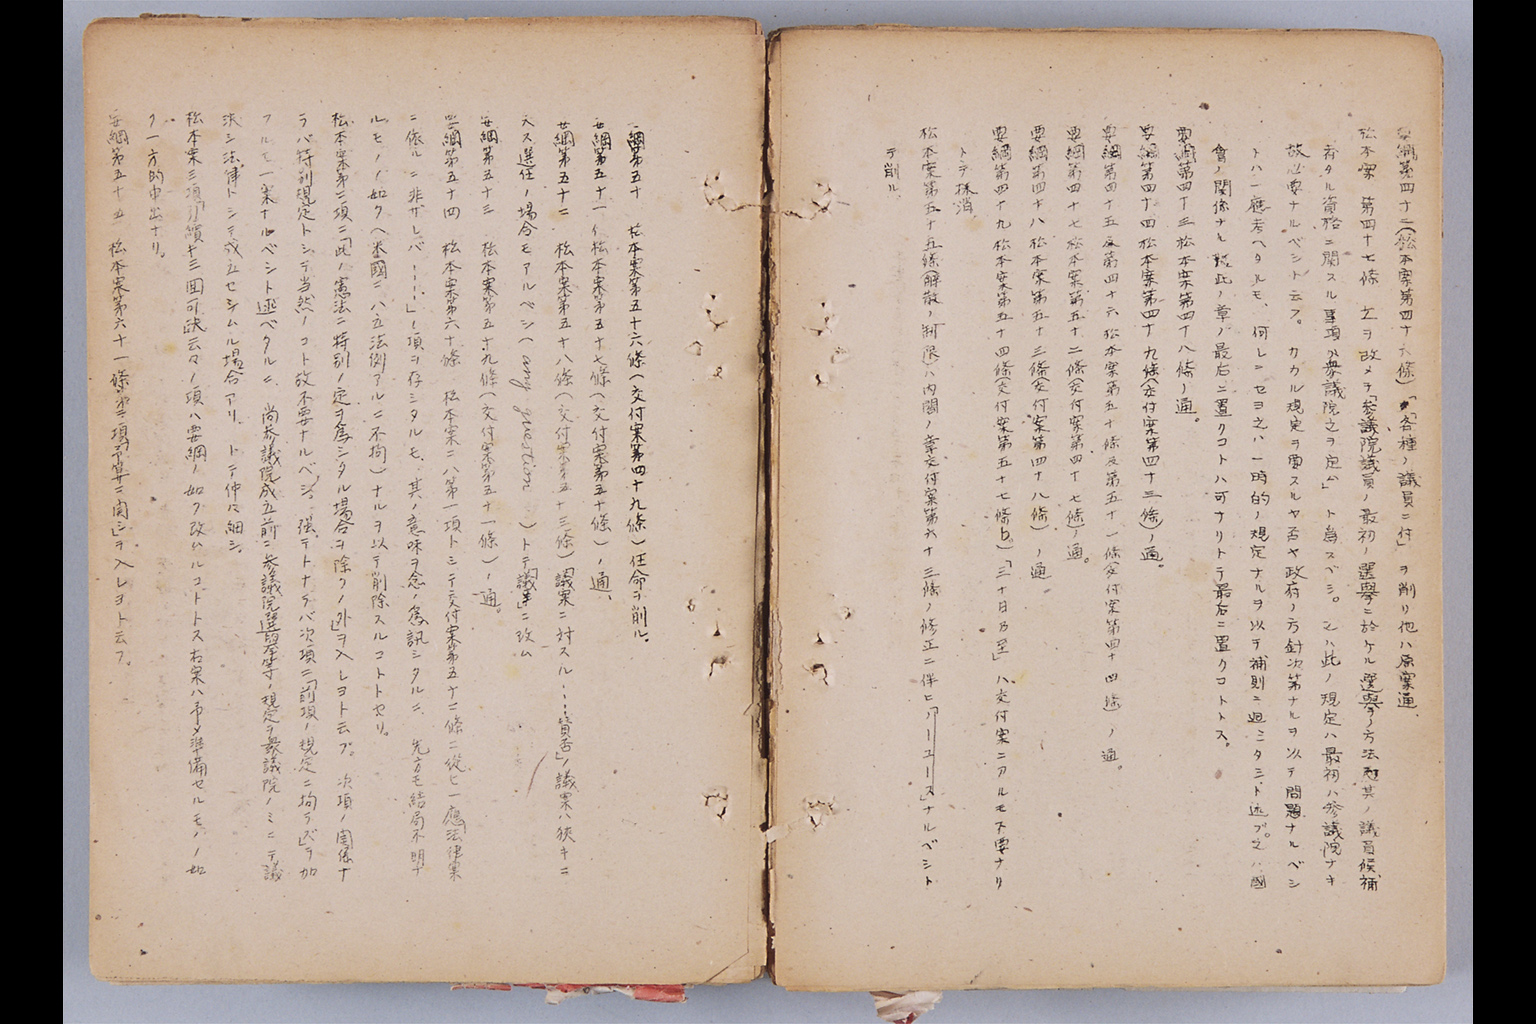 要綱第四十二(松本案第四十六條)「各種ノ議員ニ付」ヲ削リ他ハ原案通
松本案第四十七條 左ヲ改メテ「参議院議員ノ最初ノ選擧ニ於ケル選擧ノ方法 其ノ議員候補
者タル資格ニ関スル事項ハ衆議院之ヲ定ム」ト為スベシ。之ハ此ノ規定ハ最初ハ参議院ナキ
故必要ナルベシト云フ。カカル規定ヲ要スルヤ否ヤ政府ノ方針次第ナルヲ以テ問題ナルベシ
トハ一應考ヘタルモ、何レニセヨ之ハ一時的ノ規定ナルヲ以テ補則ニ廻シタシト述ブ。之ハ國
會ノ関係ナル故此ノ章ノ最后ニ置クコトハ可ナリトテ最后ニ置クコトトス。
要綱第四十三 松本案第四十八條ノ通。
要綱第四十四 松本案第四十九條(交付案第四十三條)ノ通。
要綱第四十五及第四十六 松本案第五十條及第五十一條(交付案第四十四條)ノ通。
要綱第四十七 松本案第五十二條(交付案第四十七條)ノ通。
要綱第四十八 松本案第五十三條(交付案第四十八條)ノ通
要綱第四十九 松本案第五十四條(交付案第五十七條b)「三十日乃至」ハ交付案ニアルモ不要ナリ
トテ抹消
松本案第五十五條(解散ノ制限)ハ内閣ノ章交付案第六十三條ノ修正ニ伴ヒ「 」ナルベシト
テ削ル
綱第五十 松本案第五十六條(交付案第四十九條)任命ヲ削ル。
要綱第五十一(松本案第五十七條(交付案第五十條)ノ通。
要綱第五十二 松本案第五十八條(交付案第五十三條)「議案ニ対スル……賛否」ノ議案ハ狭キニ
失ス選任ノ場合モアルベシ(any question)トテ「議事」ニ改ム
要綱第五十三 松本案第五十九條(交付案第五十一條)ノ通。
要綱第五十四 松本案第六十條 松本案ニハ第一項トシテ交付案第五十二條ニ從ヒ一應「法律案
ニ依ルニ非ザレバ……」ノ項ヲ存シタルモ、其ノ意味ヲ念ノ為訊シタルニ、先方モ結局不明ナ
ルモノノ如ク(米國ニハ立法例アルニ不拘)ナルヲ以テ削除スルコトトセリ。
松本案第二項ニ「此ノ憲法ニ特別ノ定ヲ為シタル場合ヲ除クノ外」ヲ入レヨト云フ。次項ノ関係ナ
ラバ特別規定トシテ当然ノコト故不要ナルベシ。強テトナラバ次項ニ「前項ノ規定ニ拘ラズ」ヲ加
フルモ一案ナルベシト述ベタルニ、尚参議院成立前ニ参議院選擧等ノ規定ヲ衆議院ノミニテ議
決シ法律トシテ成立セシムル場合アリ、トテ仲々細シ。
松本案三項「引續キ三回可決云々」ノ項ハ要綱ノ如ク改ムルコトトス右案ハ予メ準備セルモノノ如
ク一方的申出ナリ。
要綱第五十五 松本案第六十一條 第二項「予算ニ関シ」ヲ入レヨト云フ。